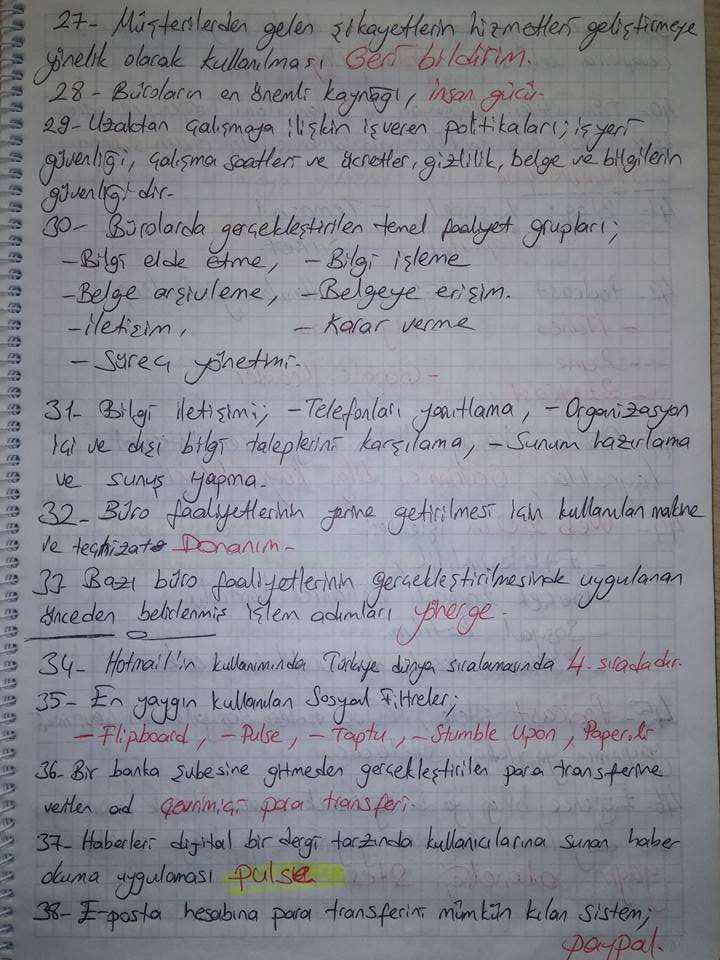 27- Müşterilerden gelen şikayetlerin hizmetleri geliştirmeye
yönelik olarak kullanılması Geri bildirim.
28- Büroların en önemli kaynağı, insan gücü.
29- Uzaktan çalışmaya ilişkin işveren politikaları; işyeri
güvenliği, çalışma saatleri ve ücretler, gizlilik, belge ve bilgilerin
güvenliği dir-
30- Bürolarda gerçekleştirilen temel faaliyet grupları;
-Bilgi elde etme, -Bilgi işleme
-Belge arşivleme, -Belgeye erişim.
-iletişim, - Karar verme
- Süreç yönetimi.
31- Bilgi iletişimi; -Telefonları yanıtlama, -Organizasyon
içi ve dışı bilgi taleplerini karşılama, -Sunum hazırlama
ve sunuş yapma.
32- Büro faaliyetlerinin yerine getirilmesi için kullanılan makine
ve teçhizat Donanım-
33 Bazı büro faaliyetlerinin gerçekleştirilmesinde uygulanan
önceden belirlenmiş işlem adımları yönerge.
34- Hotmail'in kullanımında Türkiye dünya sıralamasında 4. sıradadır.
35- En yaygın kullanılan Sosyal Filtreler;
-Flipboard, -Pulse, -Taptu, -Stumble Upon, Paper.li
36- Bir banka şubesine gitmeden gerçekleştirilen para transferine
verilen ad çevrimiçi para transferi.
37- Haberleri digital bir dergi tarzında kullanıcılarına sunan haber
okuma uygulaması pulse
38- E-posta hesabına para transferini mümkün kılan sistem;
paypal.